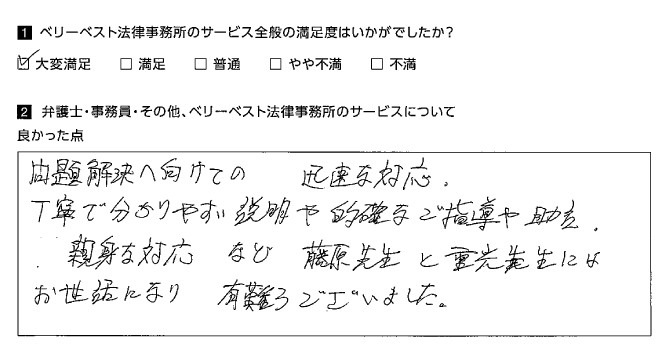 1 ベリーベスト法律事務所のサービス全般の満足度はいかがでしたか？
☑ 大変満足 □ 満足 □ 普通 □ やや不満 □ 不満
2 弁護士・事務員・その他、ベリーベスト法律事務所のサービスについて
良かった点
問題解決へ向けての 迅速な対応.
丁寧で分かりやすい説明や的確なご指導や助言.
親身な対応 など 藤原先生と重光先生には
お世話になり 有難うございました。